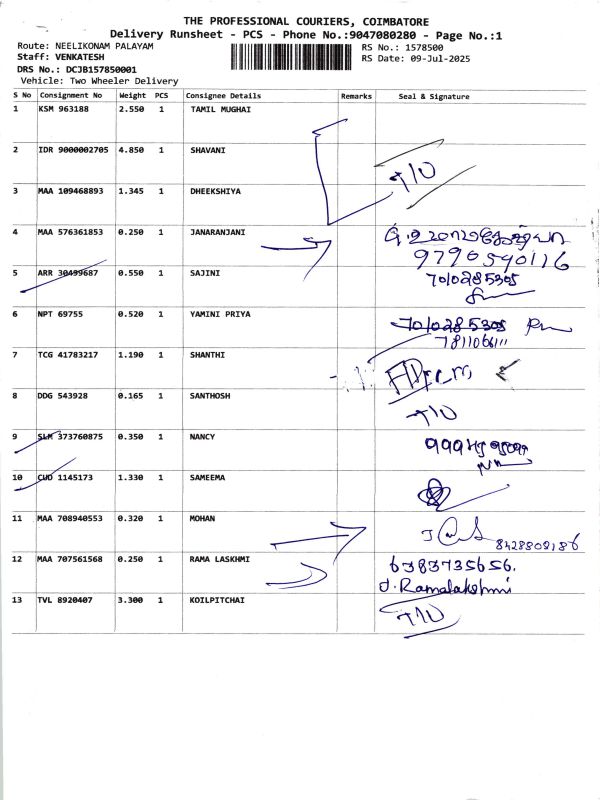 THE PROFESSIONAL COURIERS, COIMBATORE
Delivery Runsheet - PCS - Phone No.:9047080280 - Page No.:1
Route: NEELIKONAM PALAYAM
RS No.: 1578500
Staff: VENKATESH
RS Date: 09-Jul-2025
DRS No.: DCJB157850001
Vehicle: Two Wheeler Delivery
S No Consignment No Weight PCS Consignee Details Remarks Seal & Signature
1 KSM 963188 2.550 1 TAMIL MUGHAI
2 IDR 9000002705 4.850 1 SHAVANI
T/O
3 MAA 109468893 1.345 1 DHEEKSHIYA
4 MAA 576361853 0.250 1 JANARANJANI
9790590116
5 ARR 30499687 0.550 1 SAJINI 7010285305
6 NPT 69755 0.520 1 YAMINI PRIYA 7010285305
7811066111
7 TCG 41783217 1.190 1 SHANTHI
8 DDG 543928 0.165 1 SANTHOSH T/O
9 SLM 373760875 0.350 1 NANCY
10 CUD 1145173 1.330 1 SAMEEMA
11 MAA 708940553 0.320 1 MOHAN 8428809186
12 MAA 707561568 0.250 1 RAMA LASKHMI 6383735656.
J. Ramalakshmi
13 TVL 8920407 3.300 1 KOILPITCHAI T/O